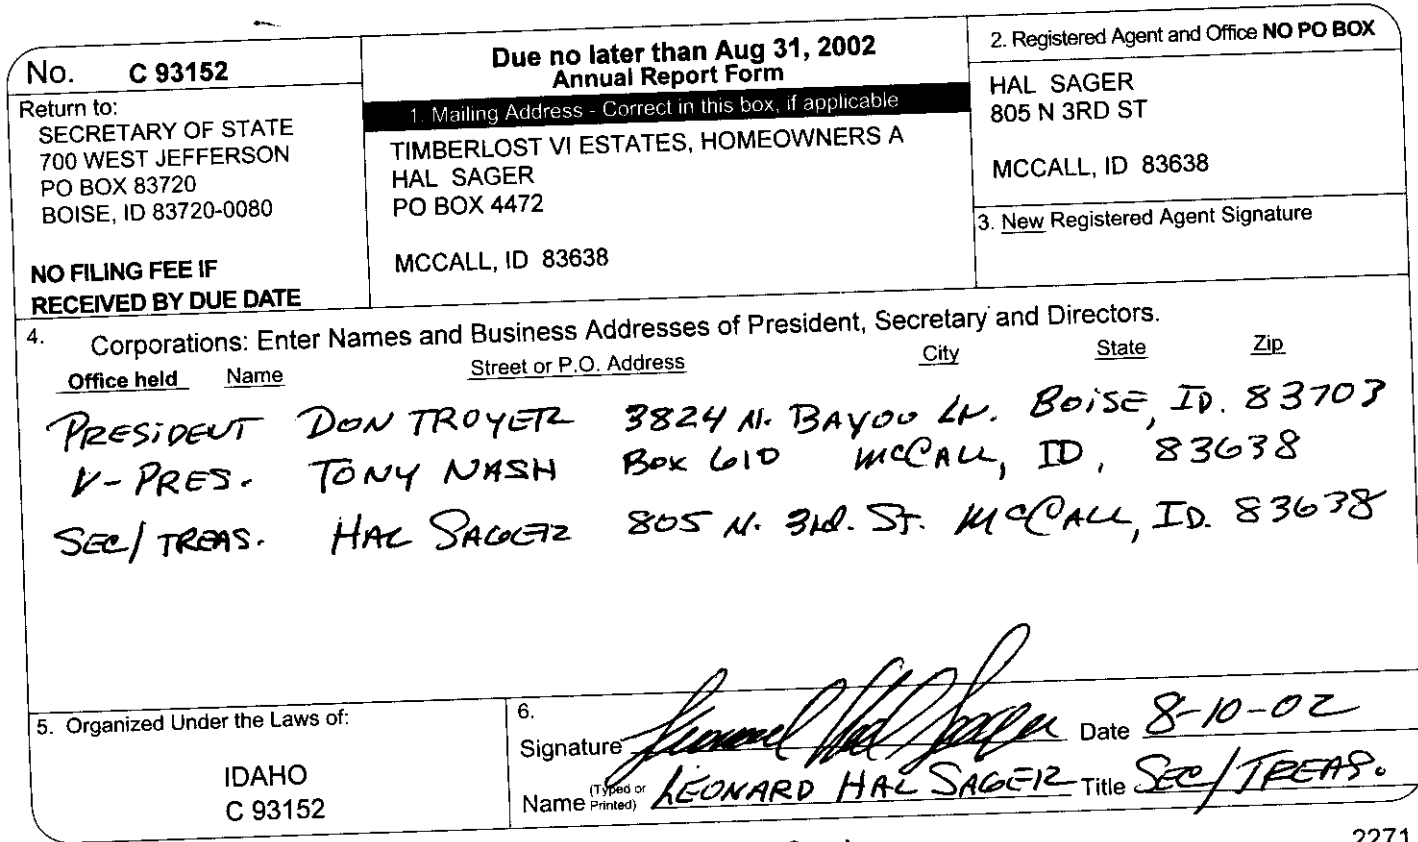 No. C 93152
Return to:
SECRETARY OF STATE
700 WEST JEFFERSON
PO BOX 83720
BOISE, ID 83720-0080
NO FILING FEE IF
RECEIVED BY DUE DATE
Due no later than Aug 31, 2002
Annual Report Form
1. Mailing Address - Correct in this box, if applicable
TIMBERLOST VI ESTATES, HOMEOWNERS A
HAL SAGER
PO BOX 4472
MCCALL, ID 83638
2. Registered Agent and Office NO PO BOX
HAL SAGER
805 N 3RD ST
MCCALL, ID 83638
3. New Registered Agent Signature
4. Corporations: Enter Names and Business Addresses of President, Secretary and Directors.
Office held Name Street or P.O. Address City State Zip
PRESIDENT DON TROYER 3824 N. BAYOU LN. BOISE, ID. 83703
V-PRES. TONY NASH BOX 610 MCCALL, ID, 83638
SEC/TREAS. HAL SAGER 805 N. 3RD. ST. MCCALL, ID. 83638
5. Organized Under the Laws of:
IDAHO
C 93152
6.
Signature Leonard Hal Sager Date 8-10-02
Name (Typed or Printed) LEONARD HAL SAGER Title SEC/TREAS.
2271